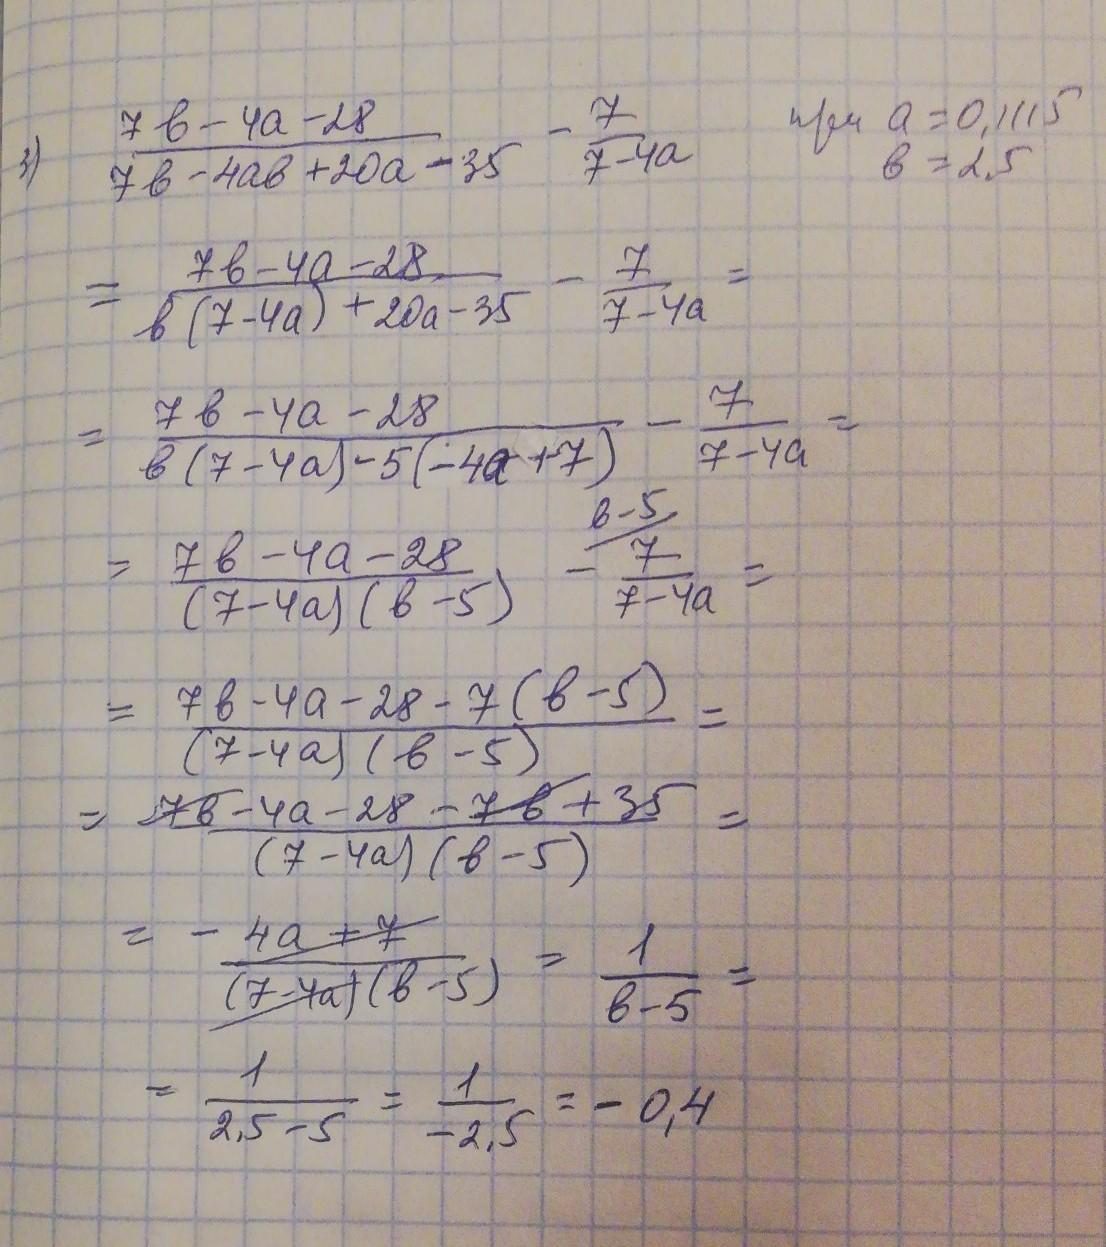 3) (7в - 4а - 28)/(7в - 4ав + 20а - 35) - 7/(7 - 4а) при а = 0,1115
в = 2,5
= (7в - 4а - 28)/(в(7 - 4а) + 20а - 35) - 7/(7 - 4а) =
= (7в - 4а - 28)/(в(7 - 4а) - 5(-4а + 7)) - 7/(7 - 4а) =
в - 5
= (7в - 4а - 28)/((7 - 4а)(в - 5)) - 7/(7 - 4а) =
= (7в - 4а - 28 - 7(в - 5))/((7 - 4а)(в - 5)) =
= (7в - 4а - 28 - 7в + 35)/((7 - 4а)(в - 5)) =
= (- 4а + 7)/((7 - 4а)(в - 5)) = 1/(в - 5) =
= 1/(2,5 - 5) = 1/(-2,5) = - 0,4